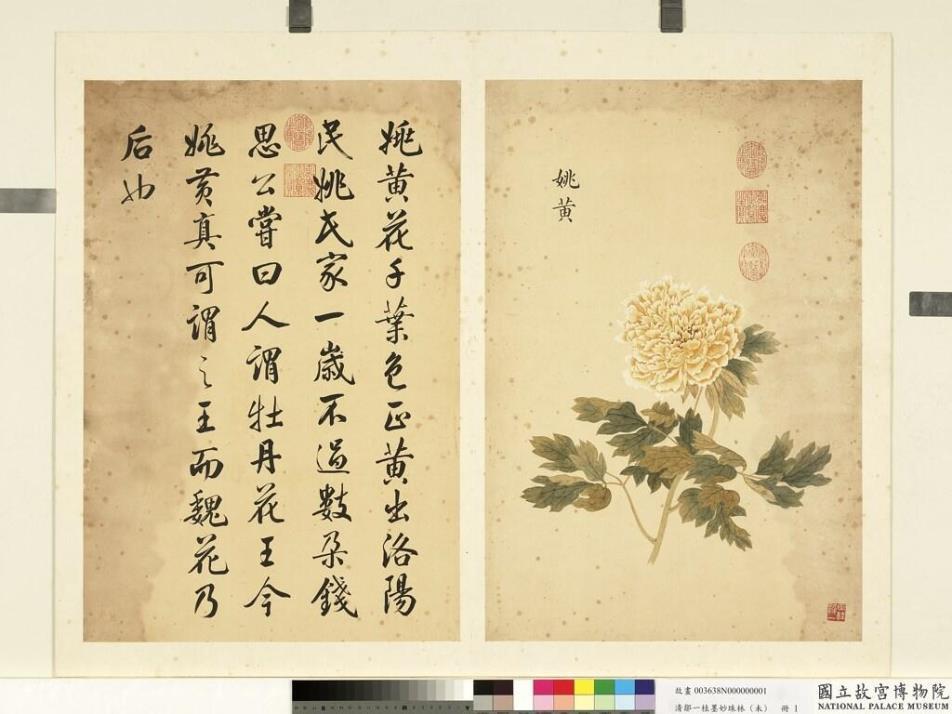 姚黄
姚黄花千葉色正黄出洛陽
民姚氏家一歲不過數朶錢
思公嘗曰人謂牡丹花王今
姚黄真可謂之王而魏花乃
后也
故畫 003638N000000001
清鄒一桂墨妙珠林（未） 冊 1
國立故宮博物院
NATIONAL PALACE MUSEUM